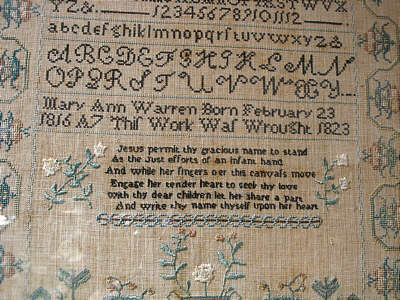 STVWX
YZ&.
123456789101112
abcdefghiklmnopqrſtuvwxyz&
ABCDEFGHIJKLMN
OPQRSTUVWXY
Mary Ann Warren Born February 23
1816 A7 Thiſ Work Waſ Wrought 1823
Jesus permit thy gracious name to stand
As the Just efforts of an infant hand
And while her fingers oer this canvass move
Engage her tender heart to seek thy love
With thy dear children let her share a part
And write thy name thyself upon her heart